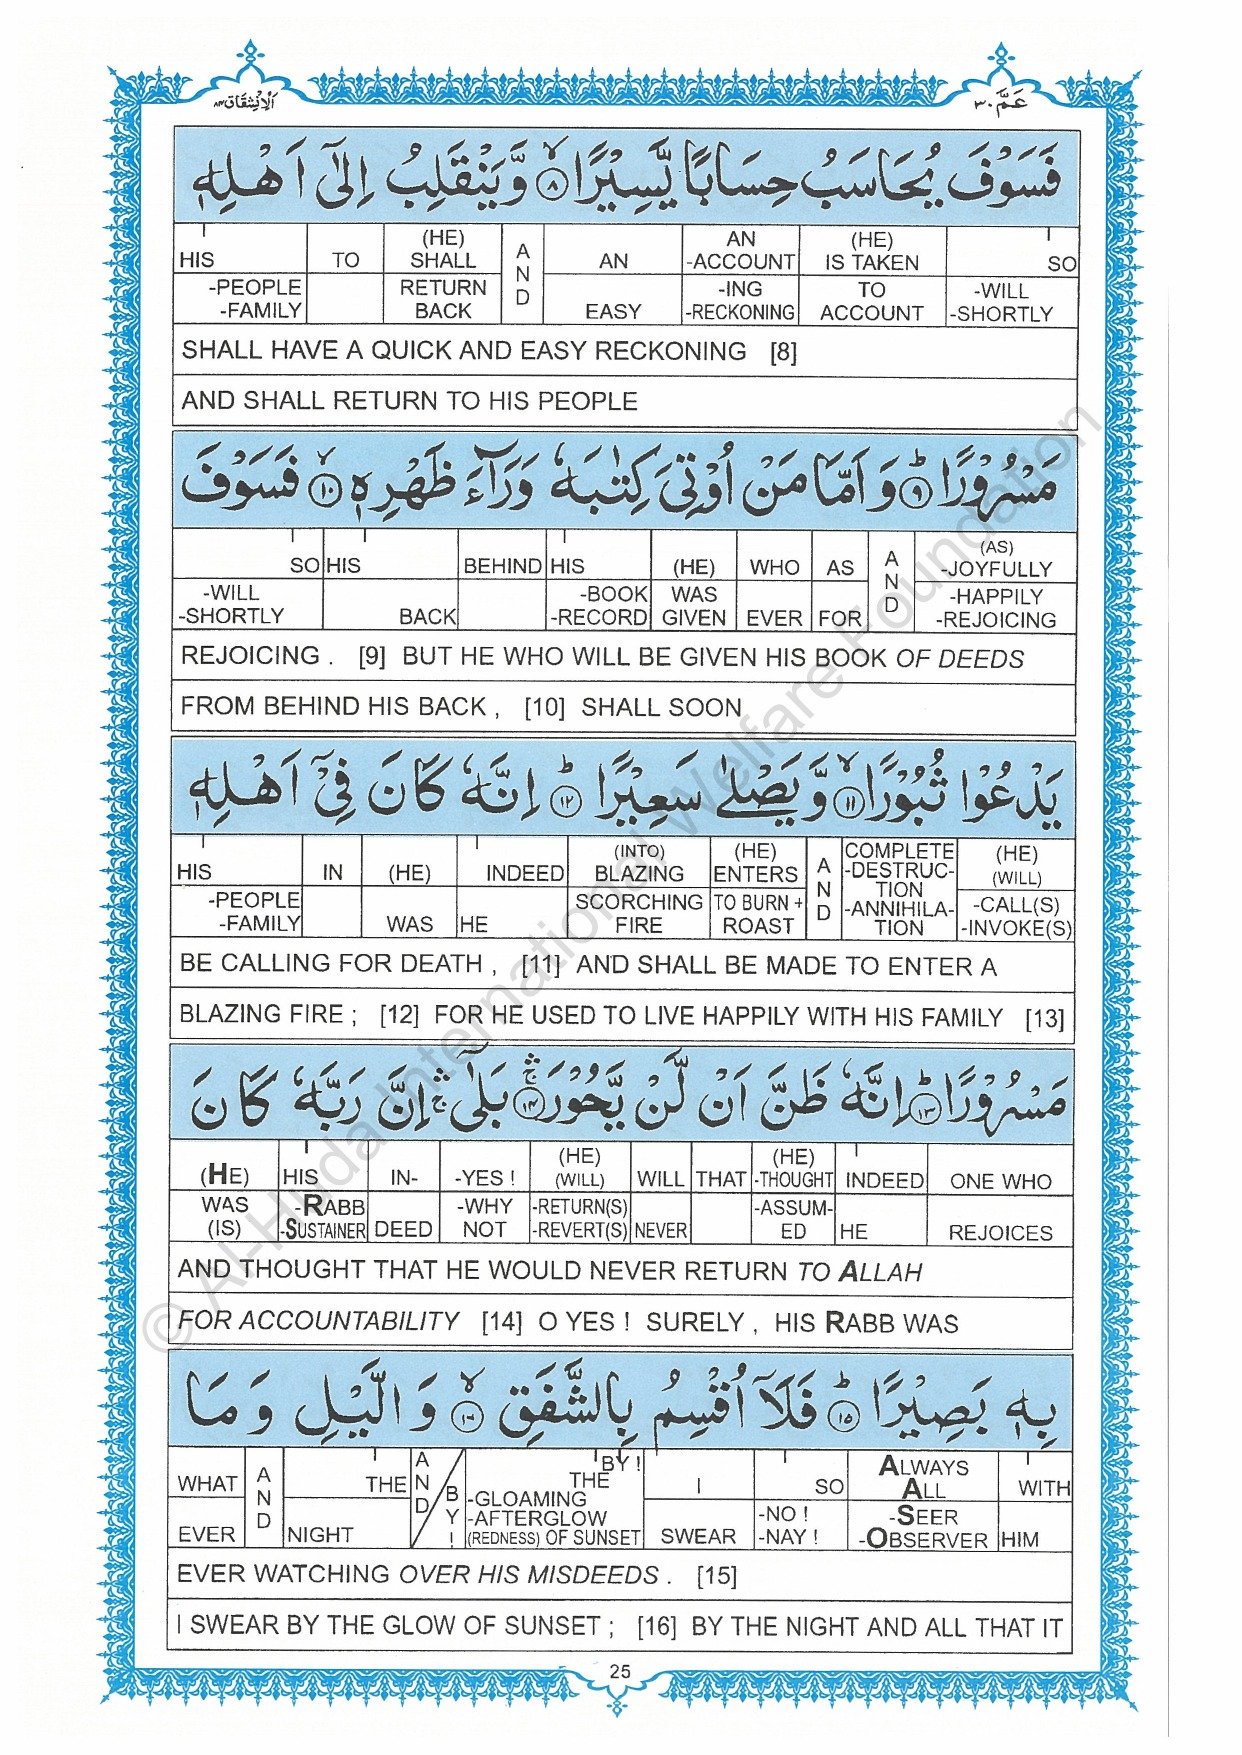 اَلْاِنْشِقَاق ٨٤
عَمَّ ٣٠
فَسَوْفَ يُحَاسَبُ حِسَابًا يَّسِيْرًا ۙ﴿٨﴾ وَّيَنْقَلِبُ اِلٰٓى اَهْلِهٖ
HIS TO (HE) SHALL AND AN AN -ACCOUNT (HE) IS TAKEN SO
-PEOPLE -FAMILY RETURN BACK EASY -ING -RECKONING TO ACCOUNT -WILL -SHORTLY
SHALL HAVE A QUICK AND EASY RECKONING [8]
AND SHALL RETURN TO HIS PEOPLE
مَسْرُوْرًا ؕ﴿٩﴾ وَ اَمَّا مَنْ اُوْتِيَ كِتٰبَهٗ وَرَآءَ ظَهْرِهٖ ۙ﴿١٠﴾ فَسَوْفَ
SO HIS BEHIND HIS (HE) WHO AS AND (AS) -JOYFULLY
-WILL -SHORTLY BACK -BOOK -RECORD WAS GIVEN EVER FOR -HAPPILY -REJOICING
REJOICING . [9] BUT HE WHO WILL BE GIVEN HIS BOOK OF DEEDS
FROM BEHIND HIS BACK , [10] SHALL SOON
يَدْعُوْا ثُبُوْرًا ۙ﴿١١﴾ وَّيَصْلٰى سَعِيْرًا ؕ﴿١٢﴾ اِنَّهٗ كَانَ فِيْٓ اَهْلِهٖ
HIS IN (HE) INDEED (INTO) BLAZING (HE) ENTERS AND COMPLETE -DESTRUC-TION (HE) (WILL)
-PEOPLE -FAMILY WAS HE SCORCHING FIRE TO BURN + ROAST -ANNIHILA-TION -CALL(S) -INVOKE(S)
BE CALLING FOR DEATH , [11] AND SHALL BE MADE TO ENTER A
BLAZING FIRE ; [12] FOR HE USED TO LIVE HAPPILY WITH HIS FAMILY [13]
مَسْرُوْرًا ؕ﴿١٣﴾ اِنَّهٗ ظَنَّ اَنْ لَّنْ يَّحُوْرَ ۚۛ﴿١٤﴾ بَلٰٓى ۚۛ اِنَّ رَبَّهٗ كَانَ
(HE) HIS IN- -YES ! (HE) (WILL) WILL THAT (HE) -THOUGHT INDEED ONE WHO
WAS (IS) -RABB -SUSTAINER DEED -WHY NOT -RETURN(S) -REVERT(S) NEVER -ASSUM-ED HE REJOICES
AND THOUGHT THAT HE WOULD NEVER RETURN TO ALLAH
FOR ACCOUNTABILITY [14] O YES ! SURELY , HIS RABB WAS
بِهٖ بَصِيْرًا ؕ﴿١٥﴾ فَلَآ اُقْسِمُ بِالشَّفَقِ ۙ﴿١٦﴾ وَ الَّيْلِ وَ مَا
WHAT AND THE AND/BY! BY ! THE I SO ALWAYS ALL WITH
EVER NIGHT -GLOAMING -AFTERGLOW (REDNESS) OF SUNSET SWEAR -NO ! -NAY ! -SEER -OBSERVER HIM
EVER WATCHING OVER HIS MISDEEDS . [15]
I SWEAR BY THE GLOW OF SUNSET ; [16] BY THE NIGHT AND ALL THAT IT
25
© Al-Huda International Welfare Foundation